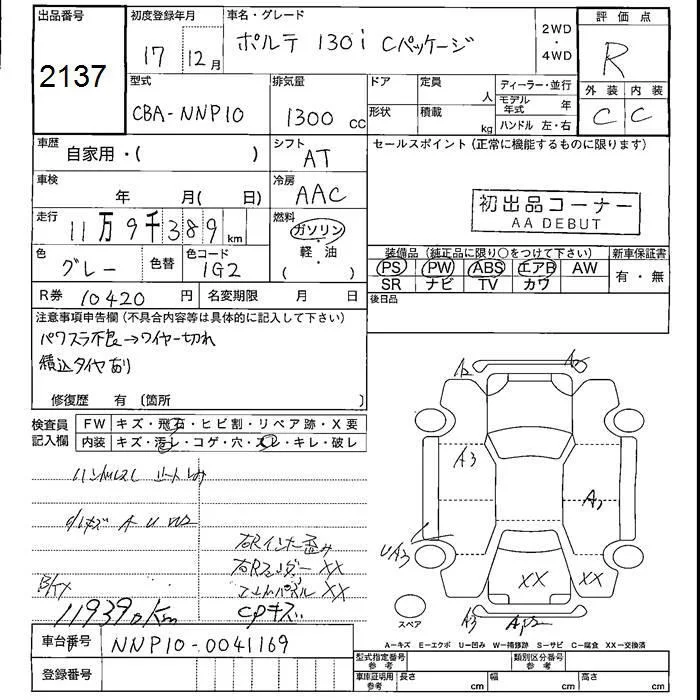 出品番号
2137
初度登録年月
17 12月
車名・グレード
ポルテ 130i Cパッケージ
2WD
・
4WD
評価点
R
外装 内装
C C
型式
CBA-NNP10
排気量
1300 CC
ドア
定員
人
形状
積載
kg
ディーラー・並行
モデル年式 年
ハンドル 左・右
車歴
自家用・( )
シフト
AT
セールスポイント(正常に機能するものに限ります)
初出品コーナー
AA DEBUT
車検
年 月( 日)
冷房
AAC
走行
11万9千389km
燃料
ガソリン
・
軽・油
( )
色
グレー
色替
色コード
1G2
装備品(純正品に限り○をつけて下さい)
PS PW ABS エアB AW
SR ナビ TV カワ
新車保証書
有・無
R券 10420 円
名変期限 月 日
後日品
注意事項申告欄(不具合内容等は具体的に記入して下さい)
パワスラ不良→ワイヤー切れ
積込タイヤあり
修復歴 有 〔箇所 〕
検査員
記入欄
FW キズ・飛石・ヒビ割・リペア跡・X要
内装 キズ・汚レ・コゲ・穴・スレ・キレ・破レ
ハンドルスレ シートしみ
小キズ A U W2
右Rインナー歪み
右Rフェンダー XX
エンドパネル XX
CPキズ
119390Km
A3
A2
UA3
XX
XX
スペア
A=キズ E=エクボ U=凹み W=補修跡 S=サビ C=腐食 XX=交換済
車台番号
NNP10-0041169
登録番号
型式指定番号
参考
類別区分番号
参考
車庫証明用
参考
長さ cm
幅 cm
高さ cm